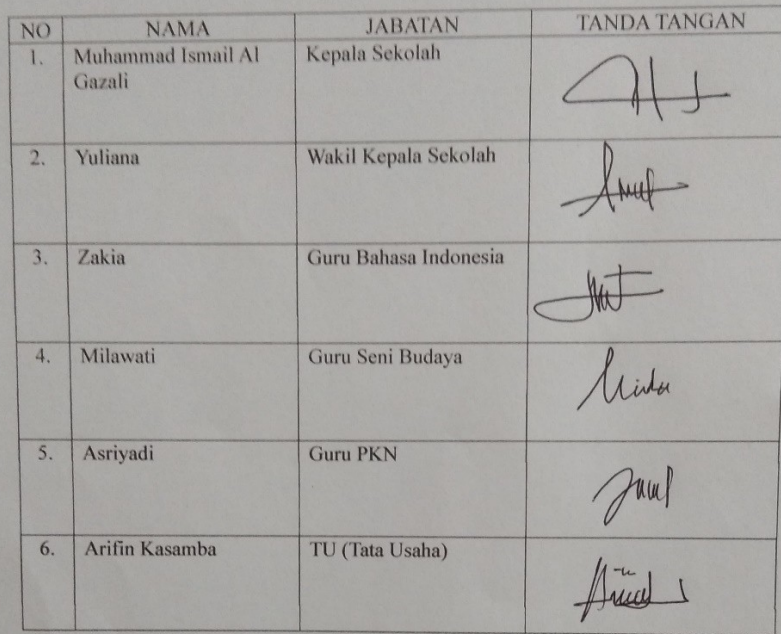 NO NAMA JABATAN TANDA TANGAN
1. Muhammad Ismail Al Kepala Sekolah
Gazali
2. Yuliana Wakil Kepala Sekolah
3. Zakia Guru Bahasa Indonesia
4. Milawati Guru Seni Budaya
5. Asriyadi Guru PKN
6. Arifin Kasamba TU (Tata Usaha)